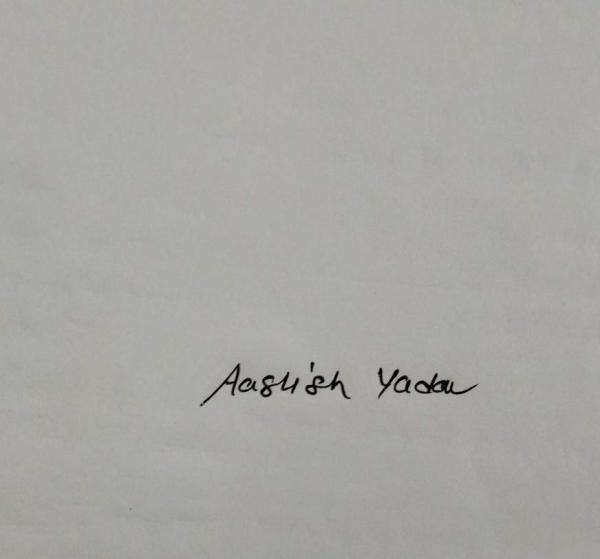 Aashish Yadav